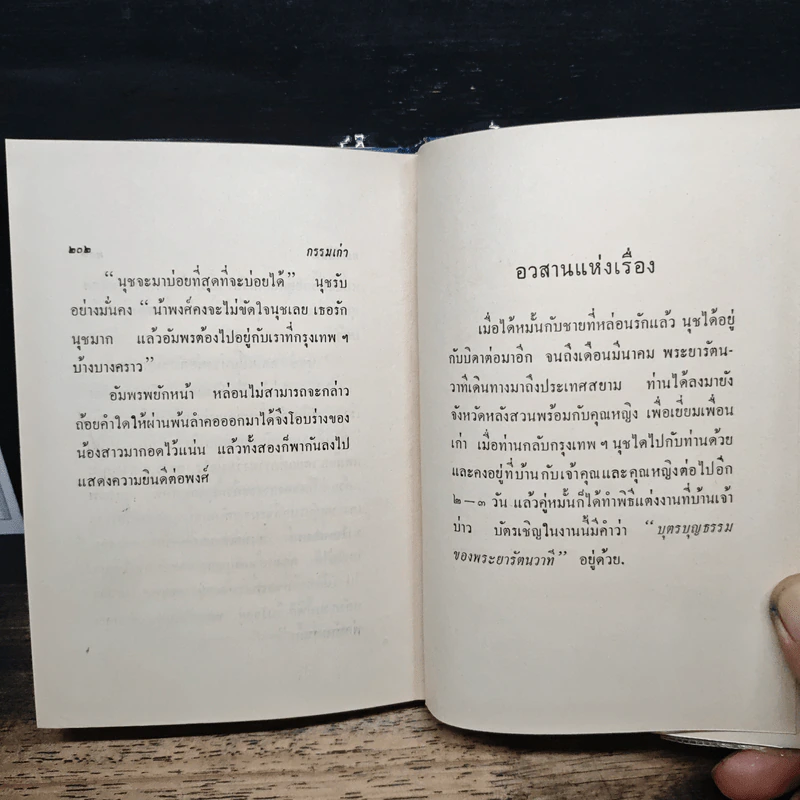 ๒๐๒ กรรมเก่า
“ นุชจะมาบ่อยที่สุดที่จะบ่อยได้ ” นุชรับ
อย่างมั่นคง “ น้าพงศ์คงจะไม่ขัดใจนุชเลย เธอรัก
นุชมาก แล้วอัมพรต้องไปอยู่กับเราที่กรุงเทพ ฯ
บ้างบางคราว ”
อัมพรพยักหน้า หล่อนไม่สามารถจะกล่าว
ถ้อยคำใดให้ผ่านพ้นลำคอออกมาได้จึงโอบร่างของ
น้องสาวมากอดไว้แน่น แล้วทั้งสองก็พากันลงไป
แสดงความยินดีต่อพงศ์
อวสานแห่งเรื่อง
เมื่อได้หมั้นกับชายที่หล่อนรักแล้ว นุชได้อยู่
กับบิดาต่อมาอีก จนถึงเดือนมีนาคม พระยารัตน-
วาทีเดินทางมาถึงประเทศสยาม ท่านได้ลงมายัง
จังหวัดหลังสวนพร้อมกับคุณหญิง เพื่อเยี่ยมเพื่อน
เก่า เมื่อท่านกลับกรุงเทพ ฯ นุชได้ไปกับท่านด้วย
และคงอยู่ที่บ้านกับเจ้าคุณและคุณหญิงต่อไปอีก
๒—๓ วัน แล้วคู่หมั้นก็ได้ทำพิธีแต่งงานที่บ้านเจ้า
บ่าว บัตรเชิญในงานนี้มีคำว่า “ บุตรบุญธรรม
ของพระยารัตนวาที ” อยู่ด้วย.